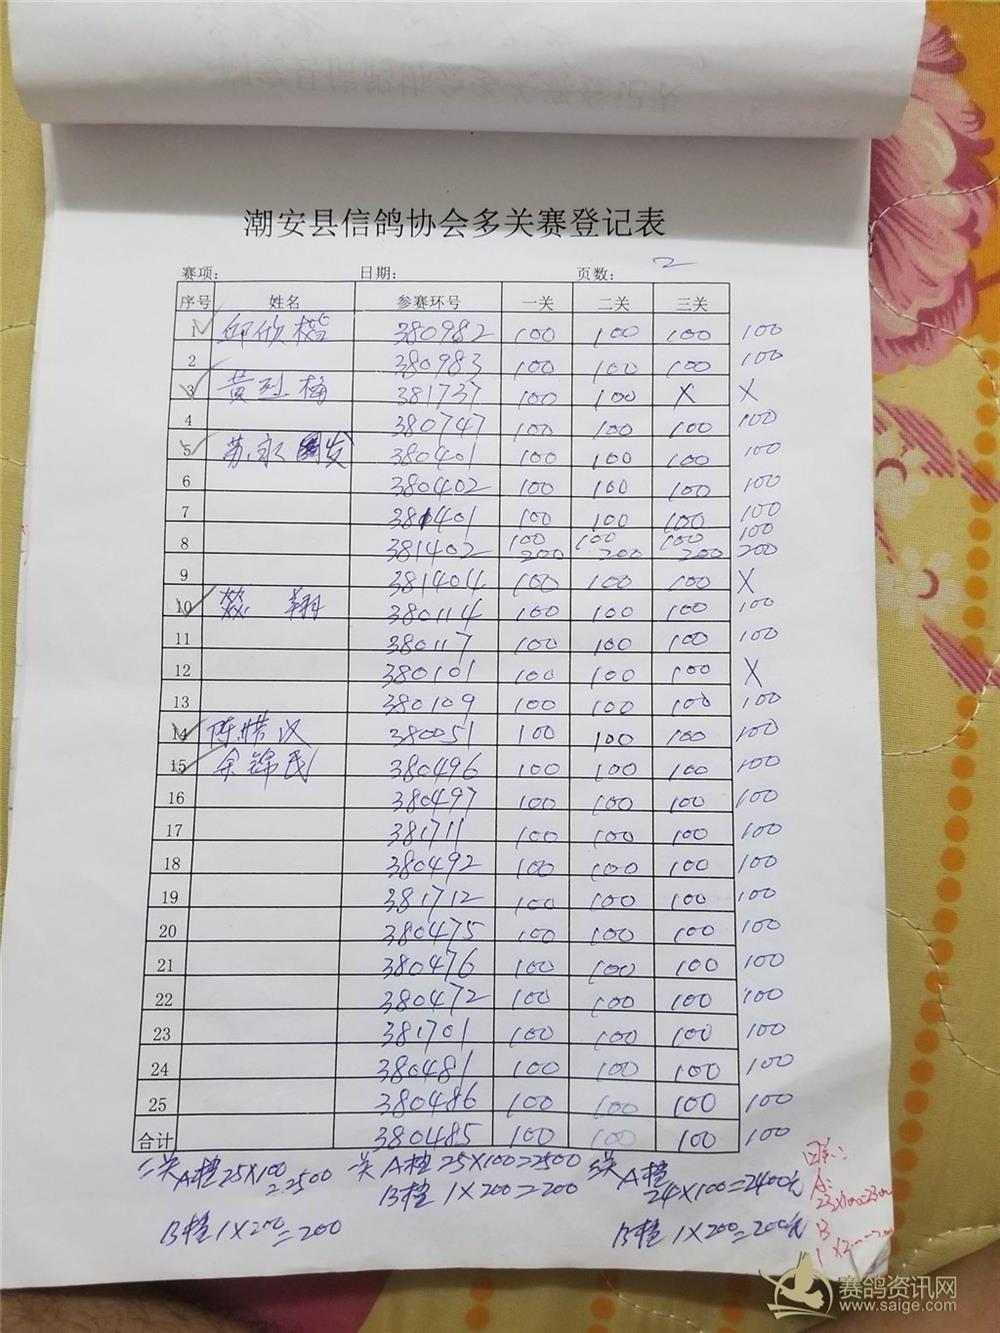 潮安县信鸽协会多关赛登记表
赛项: 日期: 页数: 2
序号 姓名 参赛环号 一关 二关 三关
1 邱欣楷 380982 100 100 100 100
2 380983 100 100 100 100
3 黄烈梅 381737 100 100 X X
4 380747 100 100 100 100
5 苏永发 380401 100 100 100 100
6 380402 100 100 100 100
7 381401 100 100 100 100
8 381402 100 200 100 200 100 200 100 200
9 381404 100 100 100 X
10 翔 380114 100 100 100 100
11 380117 100 100 100 100
12 380101 100 100 100 X
13 380109 100 100 100 100
14 陈惜汉 380051 100 100 100 100
15 余锦民 380496 100 100 100 100
16 380497 100 100 100 100
17 381711 100 100 100 100
18 380492 100 100 100 100
19 381712 100 100 100 100
20 380475 100 100 100 100
21 380476 100 100 100 100
22 380472 100 100 100 100
23 381701 100 100 100 100
24 380481 100 100 100 100
25 380486 100 100 100 100
合计 380485 100 100 100 100
二关 A档 25×100=2500 一关 A档 25×100=2500 三关 A档 24×100=2400元
B档 1×200=200 B档 1×200=200 B档 1×200=200元
四关:
A:
23×100=2300
B
1×200=200
赛鸽资讯网
www.saige.com